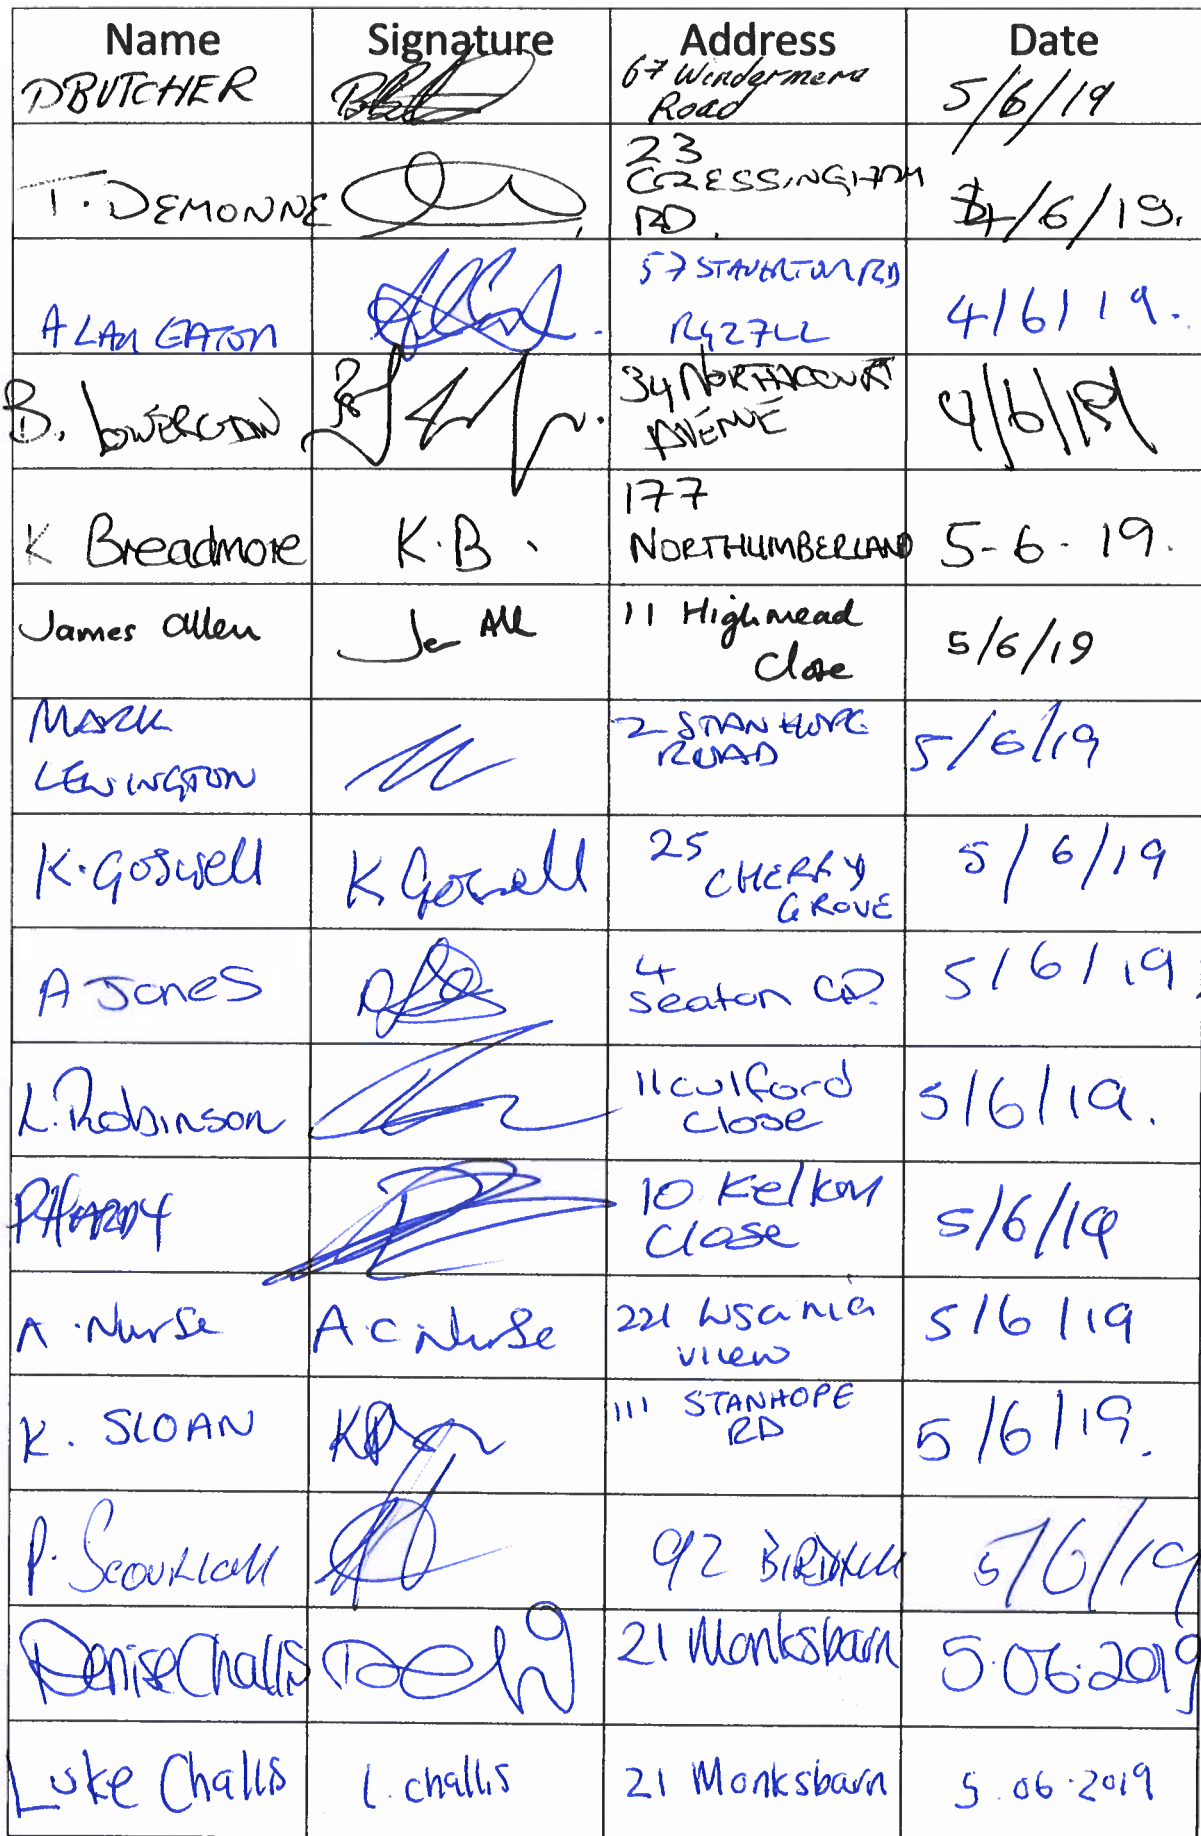 Name Signature Address Date
D BUTCHER 67 Windermere Road 5/6/19
T. DEMONNE 23 CRESSINGHAM RD. 4/6/19.
ALAN EATON 57 STAVERTON RD RG2 7LL 4/6/19.
B. 34 NORTHCOURT AVENUE 4/6/19
K Breadmore K.B. 177 NORTHUMBERLAND 5-6-19.
James Allen 11 Highmead Close 5/6/19
MARK LEWINGTON 2 STANHOPE ROAD 5/6/19
K. Goswell K Goswell 25 CHERRY GROVE 5/6/19
A Jones 4 Seaton 5/6/19
L. Robinson 11 Culford Close 5/6/19.
P HARDY 10 Close 5/6/19
A. Nurse A.C. Nurse 221 view 5/6/19
K. SLOAN 111 STANHOPE RD 5/6/19.
P. 92 5/6/19
Denise Challis 21 Monksbarn 5.06.2019
Luke Challis L. challis 21 Monksbarn 5.06.2019